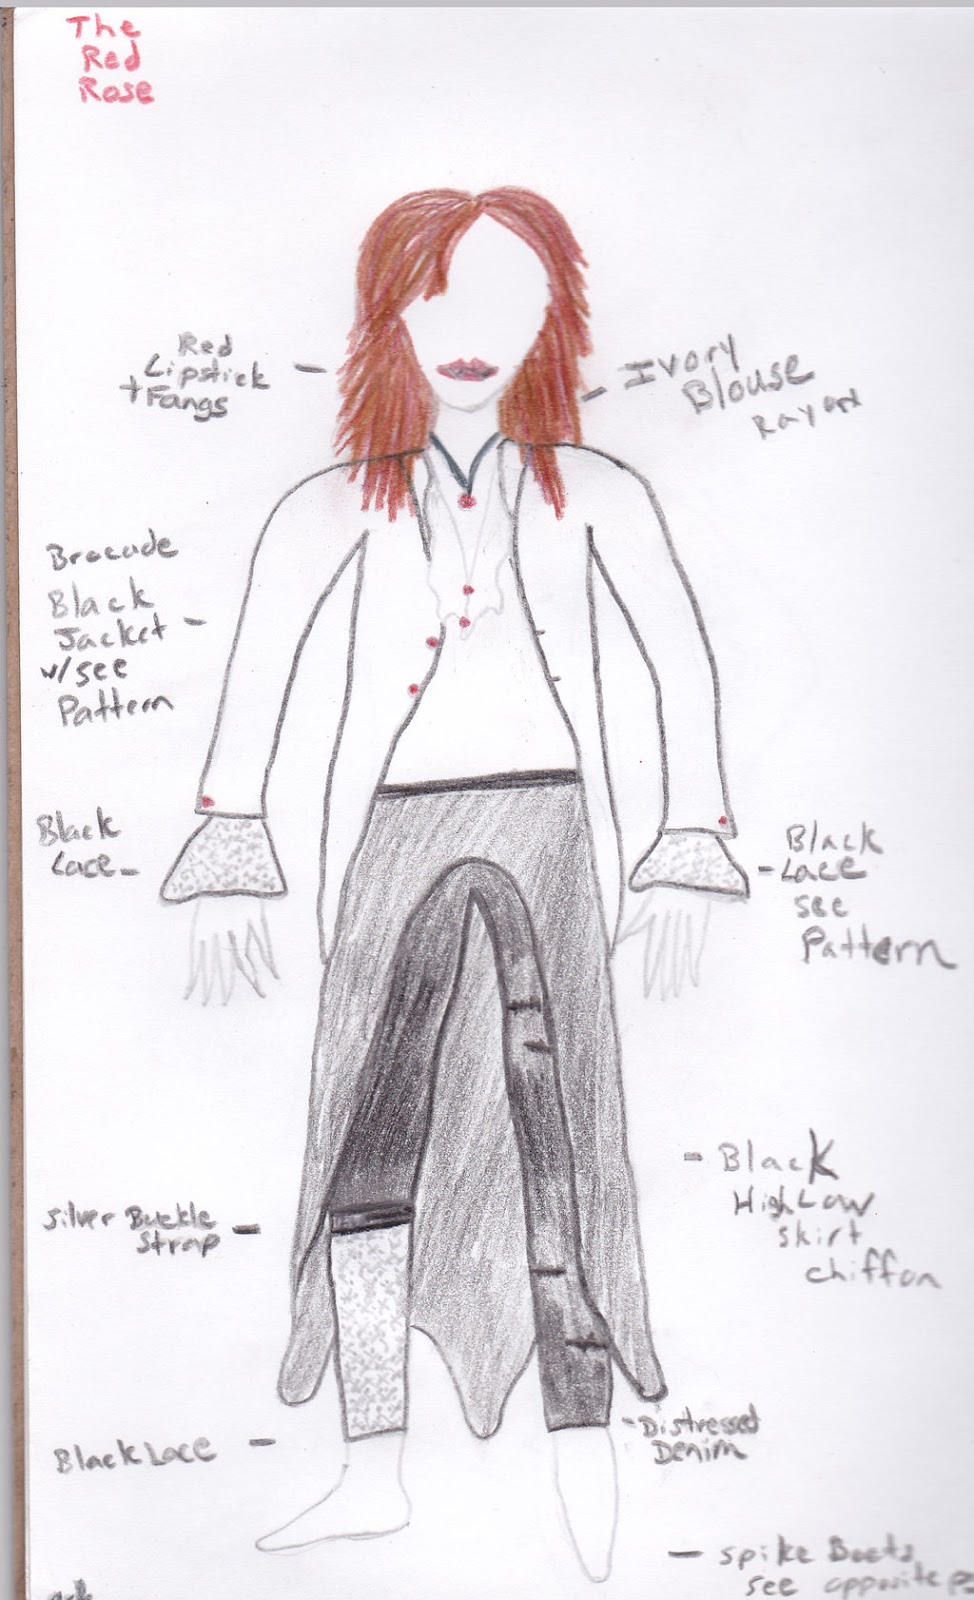 The
Red
Rose
Red
Lipstick
+ Fangs
Ivory
Blouse
Rayon
Brocade
Black
Jacket
w/see
Pattern
Black
Lace
Black
Lace
see
Pattern
Black
High Low
skirt
chiffon
Silver Buckle
Strap
Distressed
Denim
Black Lace
spike Boots
see opposite